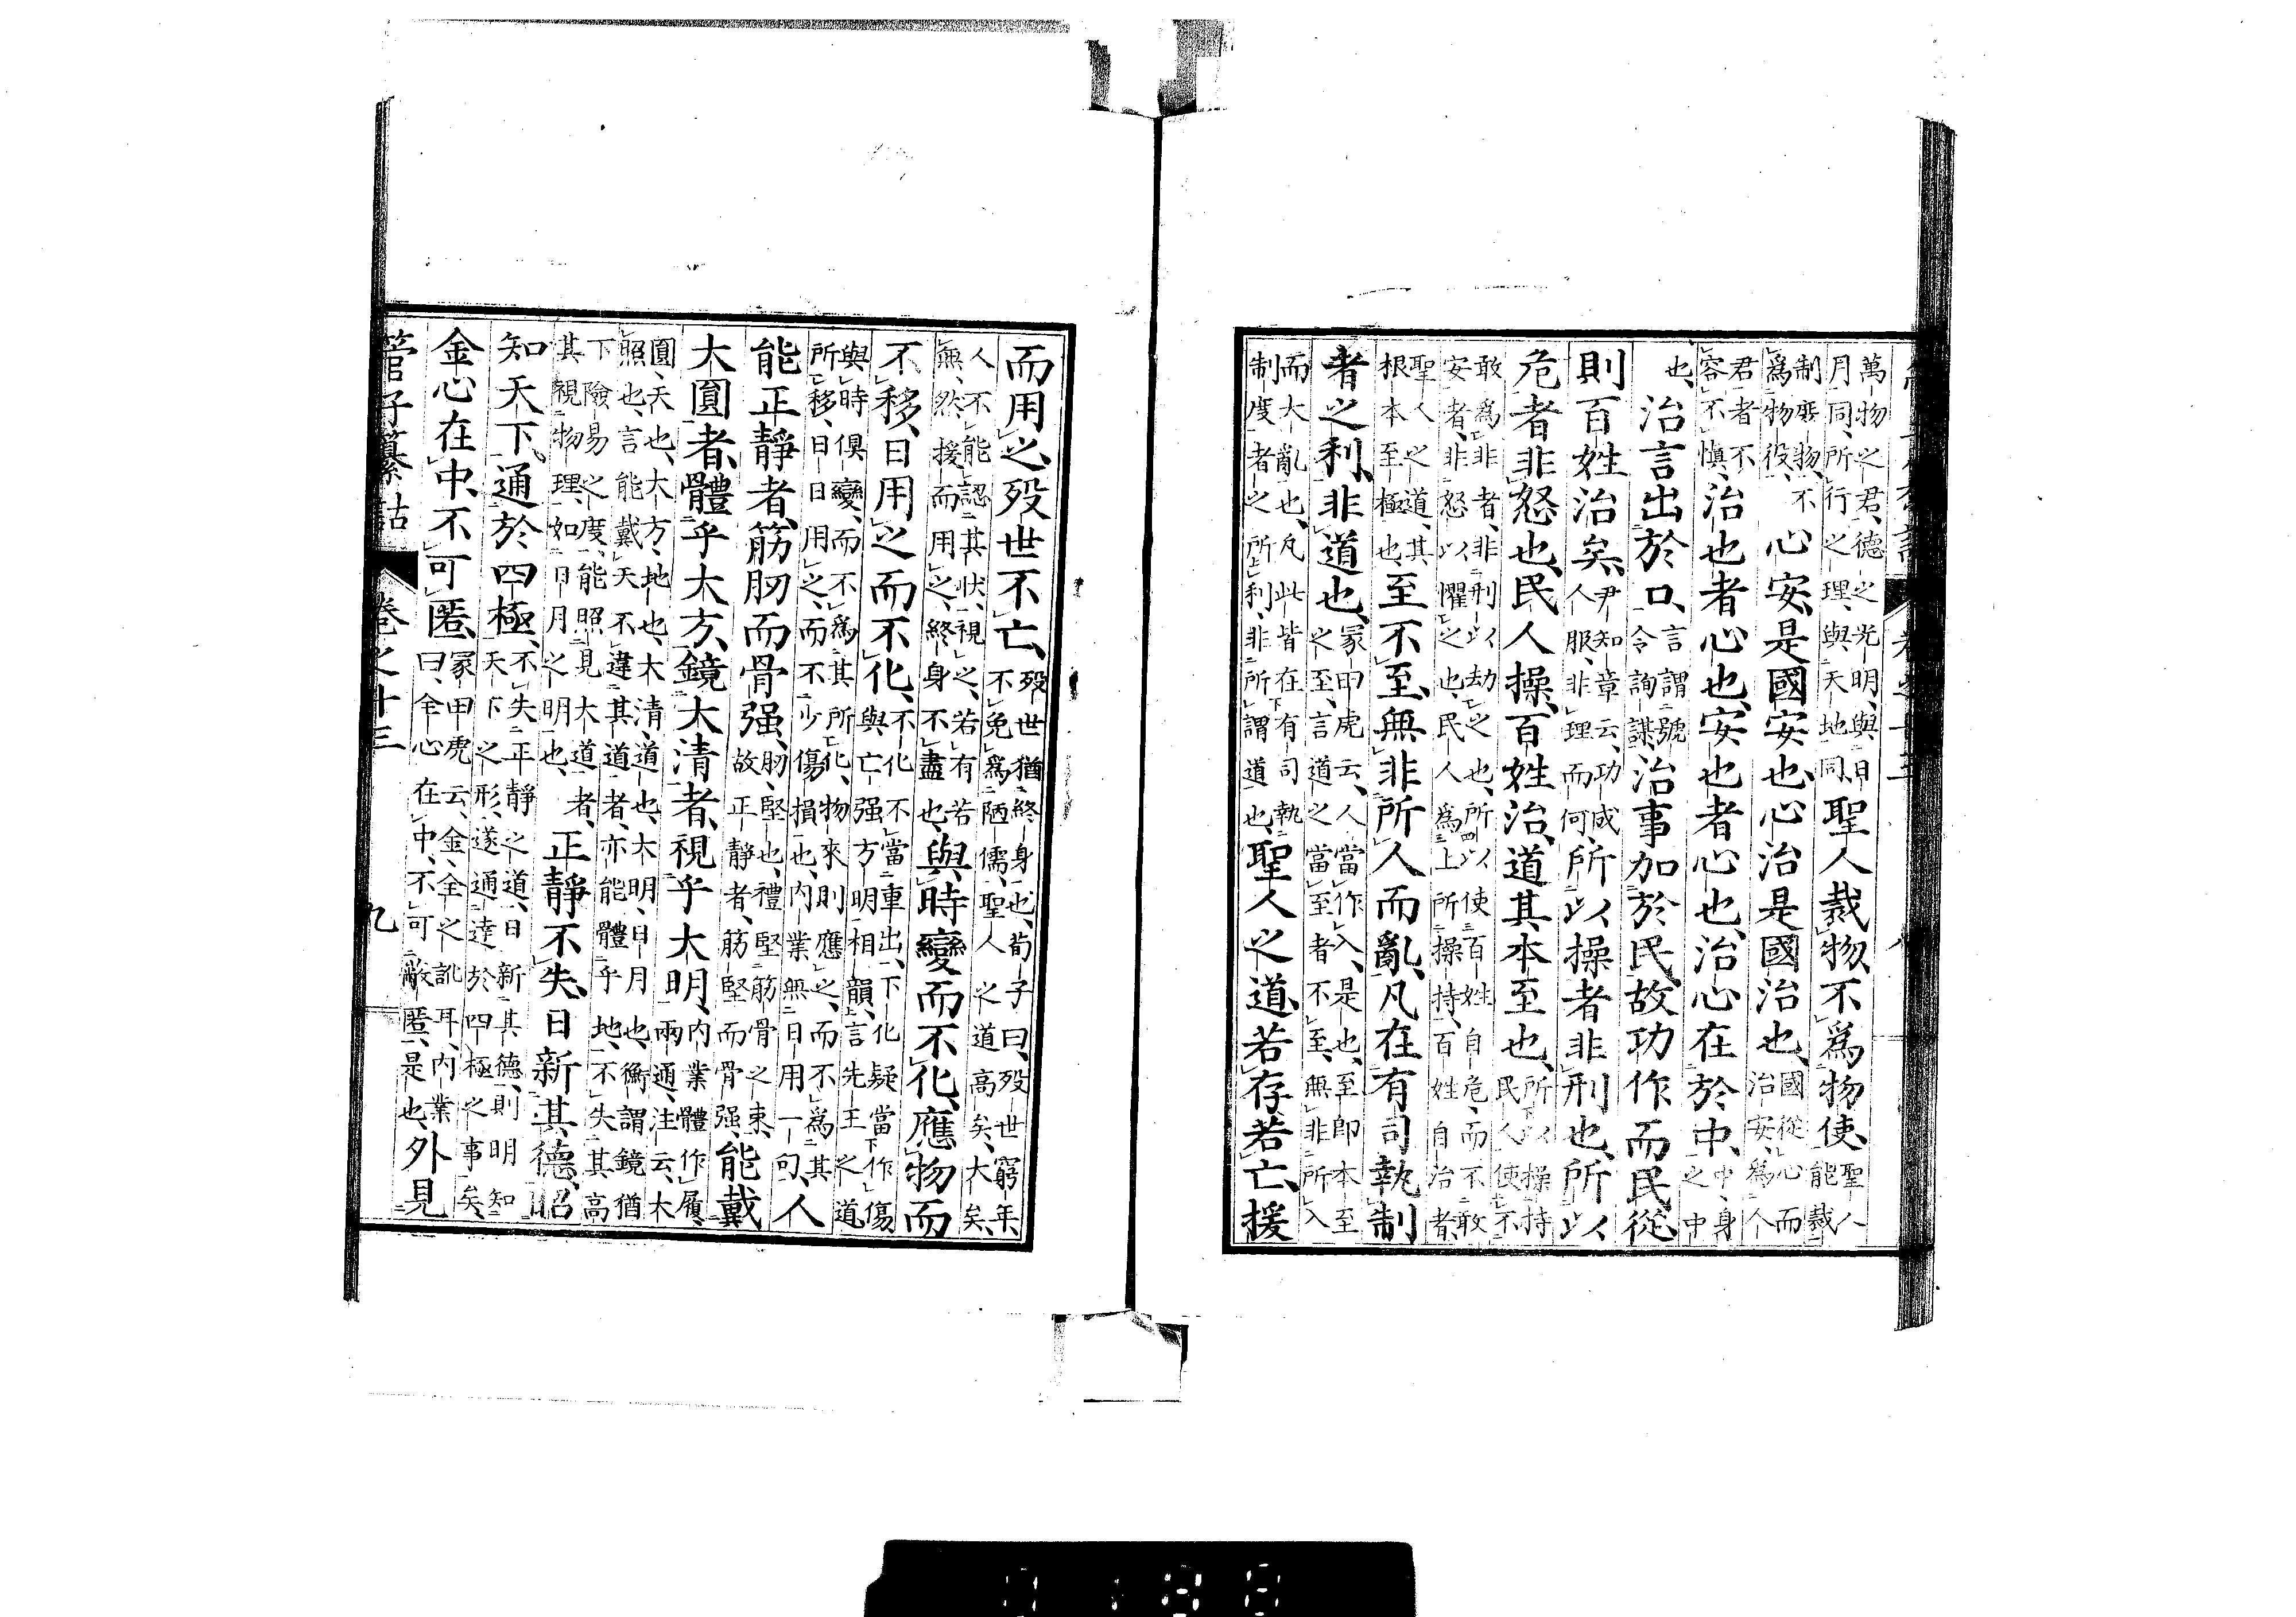 萬物之君、德之光明、與日月同、所行之理、與天地同、聖人裁物、不爲物使、聖人能裁
制萬物、不爲物役、心安、是國安也、心治是國治也、國從心而治安、爲人
君者不容不愼、治也者心也、安也者心也、治心在於中、中、身之中
也、治言出於口、言謂號令詢謀、治事加於民、故功作而民從
則百姓治矣、尹知章云、功成人服、非理而何、所以操者非刑也、所以
危者非怒也、民人操、百姓治、道其本至也、所以操持民人使不
敢爲非者、非刑以劫之也、所以使百姓自危、而不敢安者、非怒以懼之也、民人爲上所操持、百姓自治者、
聖人之道、其根本至極也、至不至、無非所人而亂、凡在有司執制
者之利、非道也、冢田虎云、人當作入、是也、至卽本至之至、言道之當至者不至、無非所入
而大亂也、凡此皆在有司執制度者之所利、非所謂道也、聖人之道、若存若亡、援
而用之、歿世不亡、歿世猶終身也、荀子曰、歿世窮年、不免爲陋儒、聖人之道高矣、大矣、
人不能認其狀、視之、若有若無、然援而用之、終身不盡也、與時變而不化、應物而
不移、日用之而不化、不化不當重出、下化疑當作傷、與亡强方明相韻、言先王之道
與時俱變、而不爲其所化、物來則應之、而不爲其所移、日日用之、而不少傷損也、內業無日用一句、人
能正靜者、筋肕而骨强、肕、堅也、禮堅筋骨之束、故正靜者、筋堅而骨强、能戴
大圓者、體乎大方、鏡大清者、視乎大明、內業體作履、兩通、注云、大
圓、天也、大方、地也、大清、道也、大明、日月也、衡謂鏡猶照也、言能戴天不違其道者、亦能體乎地、不失其高
下險易之度、能照見大道者、其視物理、如日月之明也、正靜不失、日新其德、昭
知天下、通於四極、不失正靜之道、日新其德、則明知天下之形、遂通達於四極之事矣、
金心在中、不可匿、冢田虎云、金、全之訛耳、內業曰、全心在中、不可蔽匿、是也、外見
管子纂詁 卷之十三 九